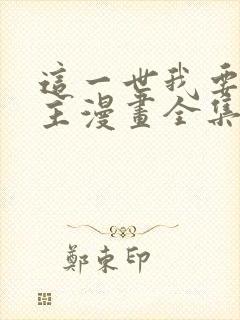 這一世我要
主漫畫全集
鄭東印